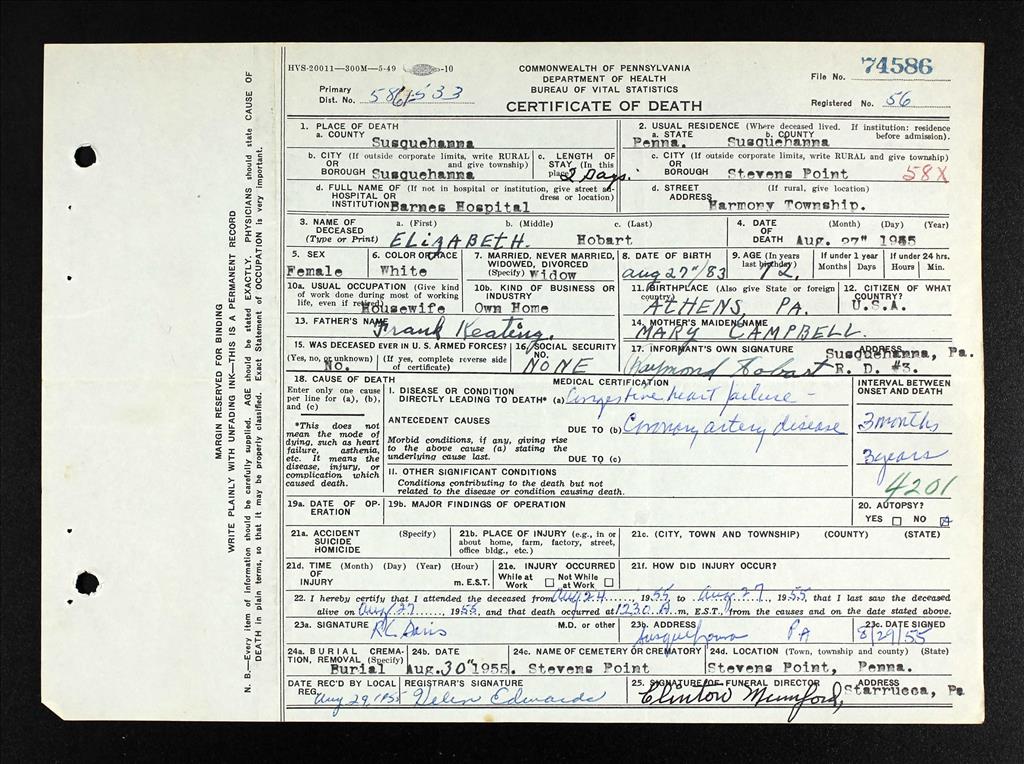 HVS-20011—300M—5-49 -10
COMMONWEALTH OF PENNSYLVANIA
DEPARTMENT OF HEALTH
BUREAU OF VITAL STATISTICS
CERTIFICATE OF DEATH
File No. 74586
Primary Dist. No. 586-533
Registered No. 56
1. PLACE OF DEATH
a. COUNTY Susquehanna
2. USUAL RESIDENCE (Where deceased lived. If institution: residence before admission).
a. STATE Penna. b. COUNTY Susquehanna
b. CITY (If outside corporate limits, write RURAL and give township) OR BOROUGH Susquehanna
c. LENGTH OF STAY (In this place) 2 Days.
c. CITY (If outside corporate limits, write RURAL and give township) OR BOROUGH Stevens Point
58X
d. FULL NAME OF (If not in hospital or institution, give street address or location) HOSPITAL OR INSTITUTION Barnes Hospital
d. STREET ADDRESS (If rural, give location) Harmony Township.
3. NAME OF DECEASED (Type or Print) a. (First) b. (Middle) c. (Last)
ELIZABETH. Hobart
4. DATE OF DEATH (Month) (Day) (Year)
Aug. 27" 1955
5. SEX Female
6. COLOR OR RACE White
7. MARRIED, NEVER MARRIED, WIDOWED, DIVORCED (Specify) Widow
8. DATE OF BIRTH Aug 27"/83
9. AGE (In years last birthday) 72.
If under 1 year Months Days
If under 24 hrs. Hours Min.
10a. USUAL OCCUPATION (Give kind of work done during most of working life, even if retired) Housewife
10b. KIND OF BUSINESS OR INDUSTRY Own Home
11. BIRTHPLACE (Also give State or foreign country) ATHENS, PA.
12. CITIZEN OF WHAT COUNTRY? U.S.A.
13. FATHER'S NAME Frank Keating.
14. MOTHER'S MAIDEN NAME MARY CAMPBELL.
15. WAS DECEASED EVER IN U. S. ARMED FORCES? (Yes, no, or unknown) (If yes, complete reverse side of certificate) No.
16. SOCIAL SECURITY NO. NONE
17. INFORMANT'S OWN SIGNATURE Raymond Hobart
ADDRESS Susquehanna, Pa. R. D. #3.
18. CAUSE OF DEATH
Enter only one cause per line for (a), (b), and (c)
*This does not mean the mode of dying, such as heart failure, asthenia, etc. It means the disease, injury, or complication which caused death.
MEDICAL CERTIFICATION
I. DISEASE OR CONDITION DIRECTLY LEADING TO DEATH* (a) Congestive heart failure -
ANTECEDENT CAUSES
DUE TO (b) Coronary artery disease
Morbid conditions, if any, giving rise to the above cause (a) stating the underlying cause last.
DUE TO (c)
II. OTHER SIGNIFICANT CONDITIONS
Conditions contributing to the death but not related to the disease or condition causing death.
INTERVAL BETWEEN ONSET AND DEATH
3 months
3 years
4201
19a. DATE OF OPERATION
19b. MAJOR FINDINGS OF OPERATION
20. AUTOPSY?
YES NO
21a. ACCIDENT SUICIDE HOMICIDE (Specify)
21b. PLACE OF INJURY (e.g., in or about home, farm, factory, street, office bldg., etc.)
21c. (CITY, TOWN AND TOWNSHIP) (COUNTY) (STATE)
21d. TIME OF INJURY (Month) (Day) (Year) (Hour) m. E.S.T.
21e. INJURY OCCURRED While at Work Not While at Work
21f. HOW DID INJURY OCCUR?
22. I hereby certify that I attended the deceased from Aug 24, 1955 to Aug. 27, 1955 that I last saw the deceased
alive on Aug 27, 1955, and that death occurred at 1230 A m, E.S.T., from the causes and on the date stated above.
23a. SIGNATURE R.L. Davis M.D. or other
23b. ADDRESS Susquehanna PA
23c. DATE SIGNED 8/29/55
24a. BURIAL CREMATION, REMOVAL (Specify) Burial
24b. DATE Aug. 30" 1955.
24c. NAME OF CEMETERY OR CREMATORY Stevens Point
24d. LOCATION (Town, township and county) (State) Stevens Point, Penna.
DATE REC'D BY LOCAL REG. Aug 29, 1955
REGISTRAR'S SIGNATURE Helen Edwards
25. SIGNATURE OF FUNERAL DIRECTOR Clinton Mumford,
ADDRESS Starrucca, Pa
MARGIN RESERVED FOR BINDING
WRITE PLAINLY WITH UNFADING INK—THIS IS A PERMANENT RECORD
N. B.—Every item of information should be carefully supplied. AGE should be stated EXACTLY. PHYSICIANS should state CAUSE OF
DEATH in plain terms, so that it may be properly classified. Exact Statement of OCCUPATION is very important.